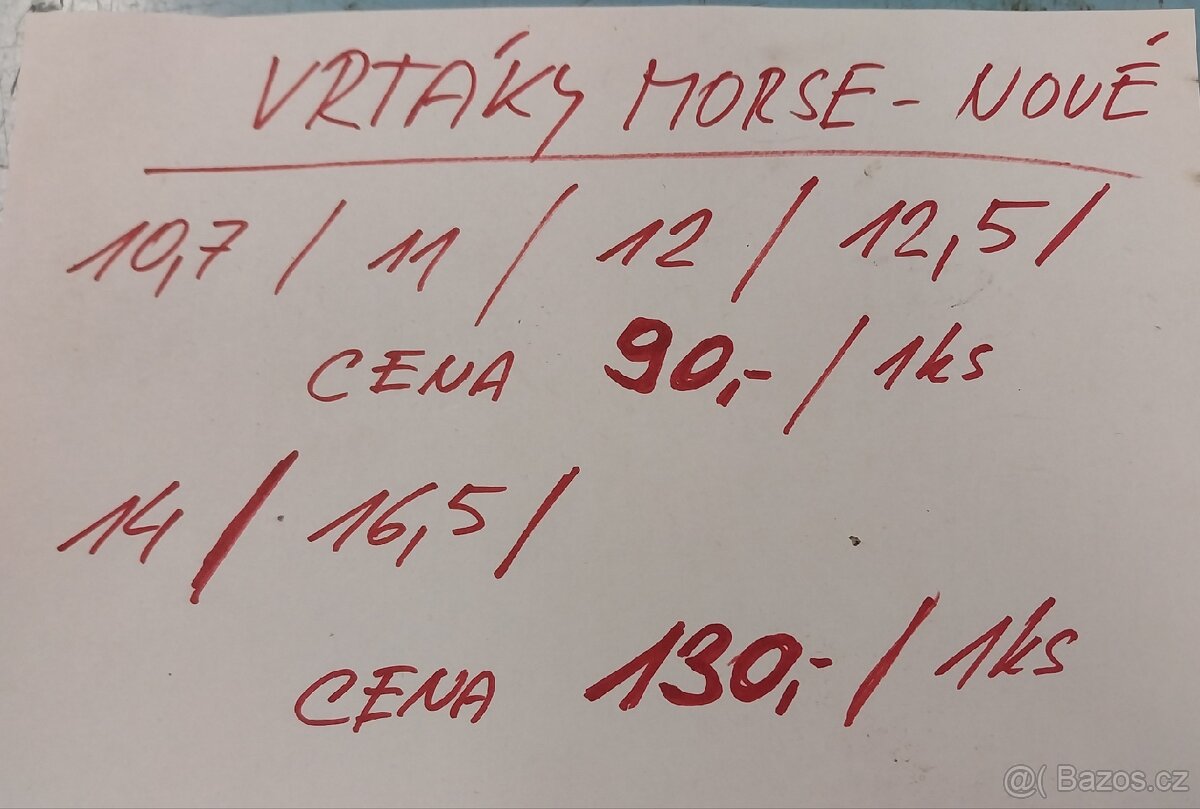 VRTÁKY MORSE - NOVÉ
10,7 / 11 / 12 / 12,5 /
CENA 90,- / 1ks
14 / 16,5 /
CENA 130,- / 1ks
@( Bazos.cz